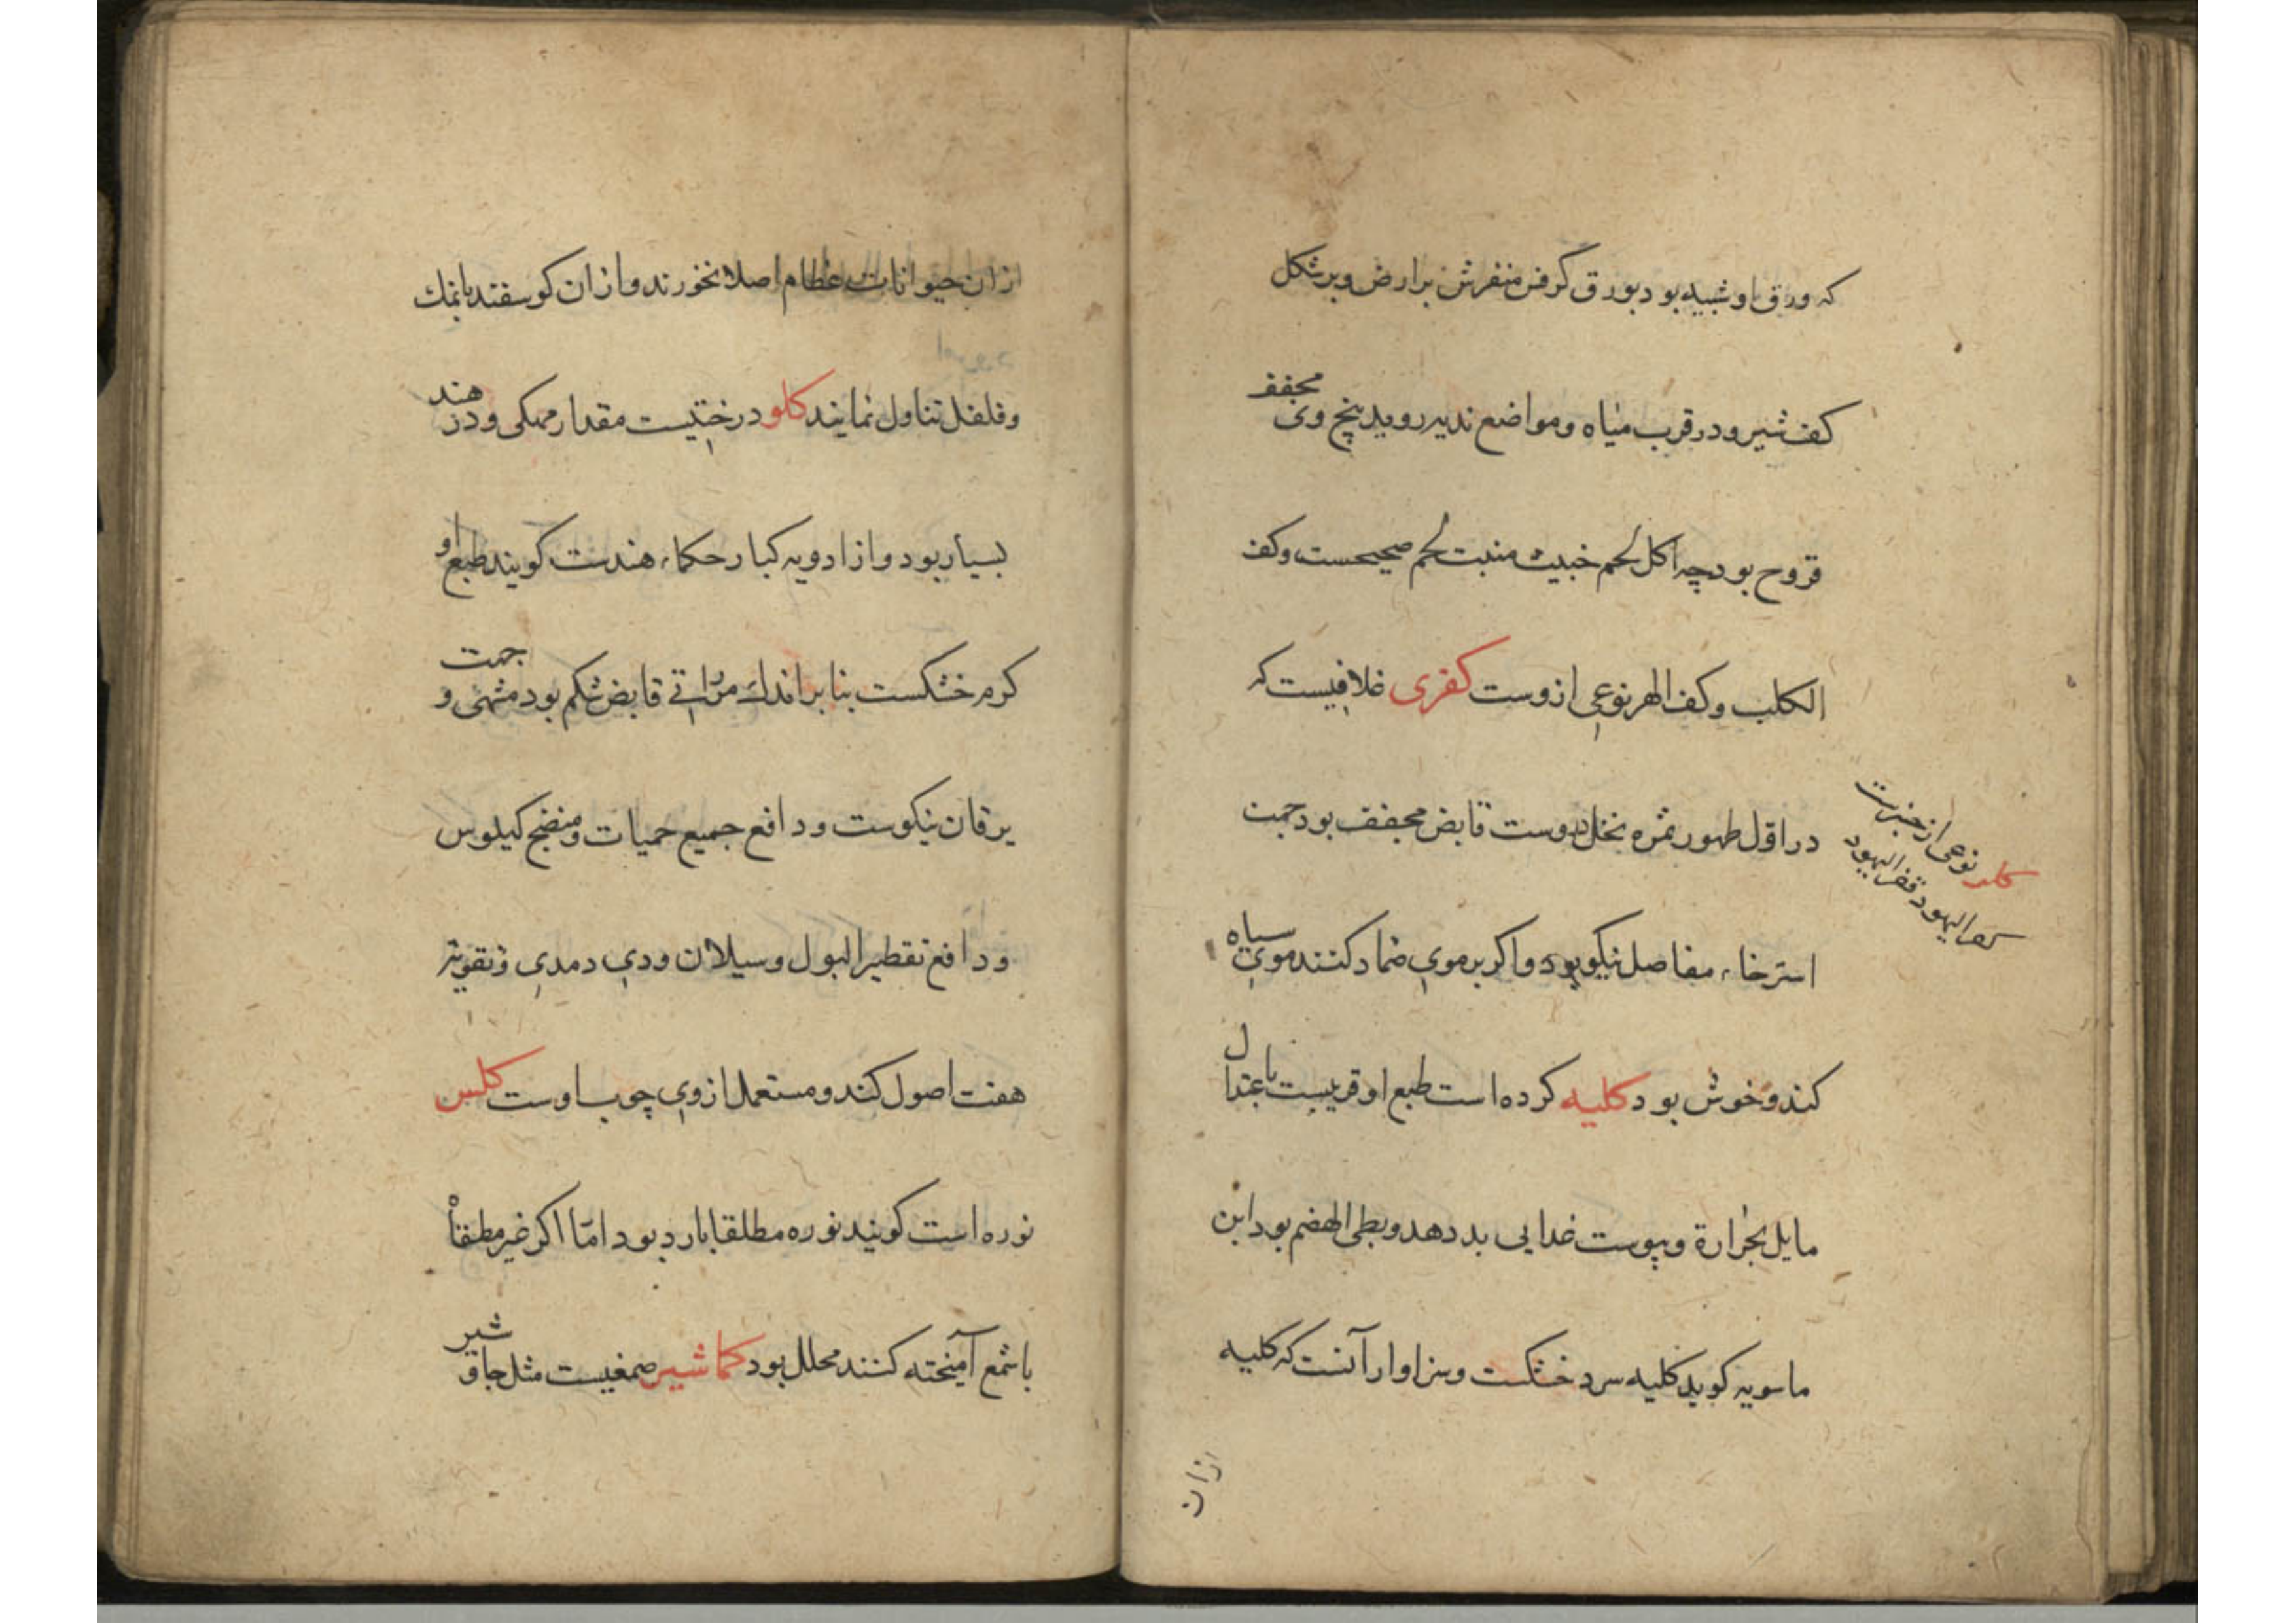 که ورق او شبیه بود بورق کرفس منفرش بر ارض و بر شکل
کف شیر و در قرب میاه و مواضع ندیه روید بیخ وی مجفف
قروح بود چه اکل لحم خبیث منبت لحم صحیحست و کف
الکلب و کف الهر نوعی ازوست کفری غلافیست که
در اوّل ظهور ثمره نخل دروست قابض مجفف بود جهت
استرخاء مفاصل نیکو بود و اکر بر موی ضماد کنند موی سیاه
کند و خوش بود کلیه کرده است طبع او قریبست باعتدال
مایل بحرارة و یبوست غدایی بد دهد و بطی الهضم بود ابن
ماسویه کوید کلیه سرد خشکست و سزاوار آنست که کلیه
ازان
نوعی از خبزست
کفر الیهود قفر الیهود
ازان حیوانات عظام اصلا نخورند و ازان کوسفند با نمك
و فلفل تناول نمایند کلو درختیست مقدار ممکی و در هند
بسیار بود و از ادویه کبار حکماء هندست کویند طبع او
کرم خشکست بنا بر اندك مرّاتی قابض شکم بود مشهی و جهت
یرقان نیکوست و دافع جمیع حمیات و منضج کیلوس
و دافع تقطیر البول و سیلان ودی و مدی و تقویة
هفت اصول کند و مستعمل ازوی چوب اوست کلس
نوره است کویند نوره مطلقا بارد بود امّا اکر غیر مطفأ
با شمع آمیخته کنند محلل بود کماشیر صمغیست مثل جاوشیر